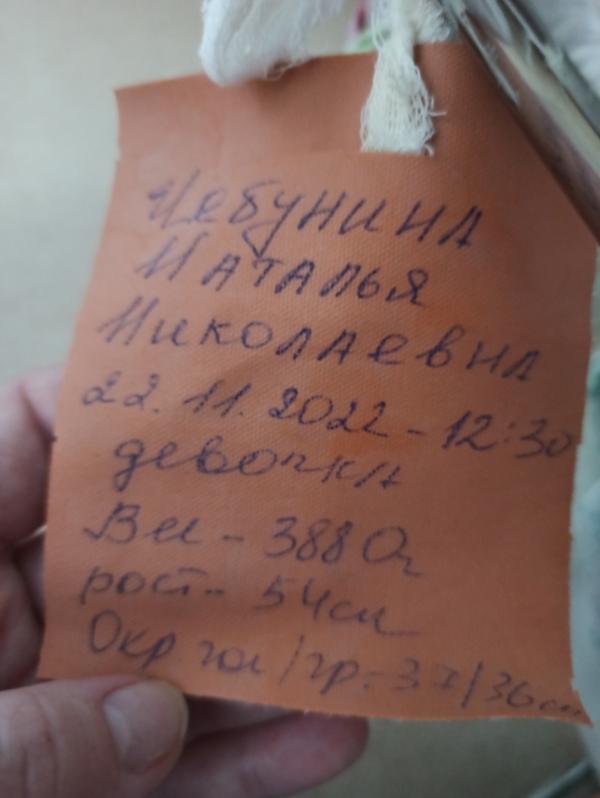 Чебунина
Наталья
Николаевна
22.11.2022 - 12:30
девочка
Вес - 3880г
рост - 54см
Окр гол/гр. - 37/36см